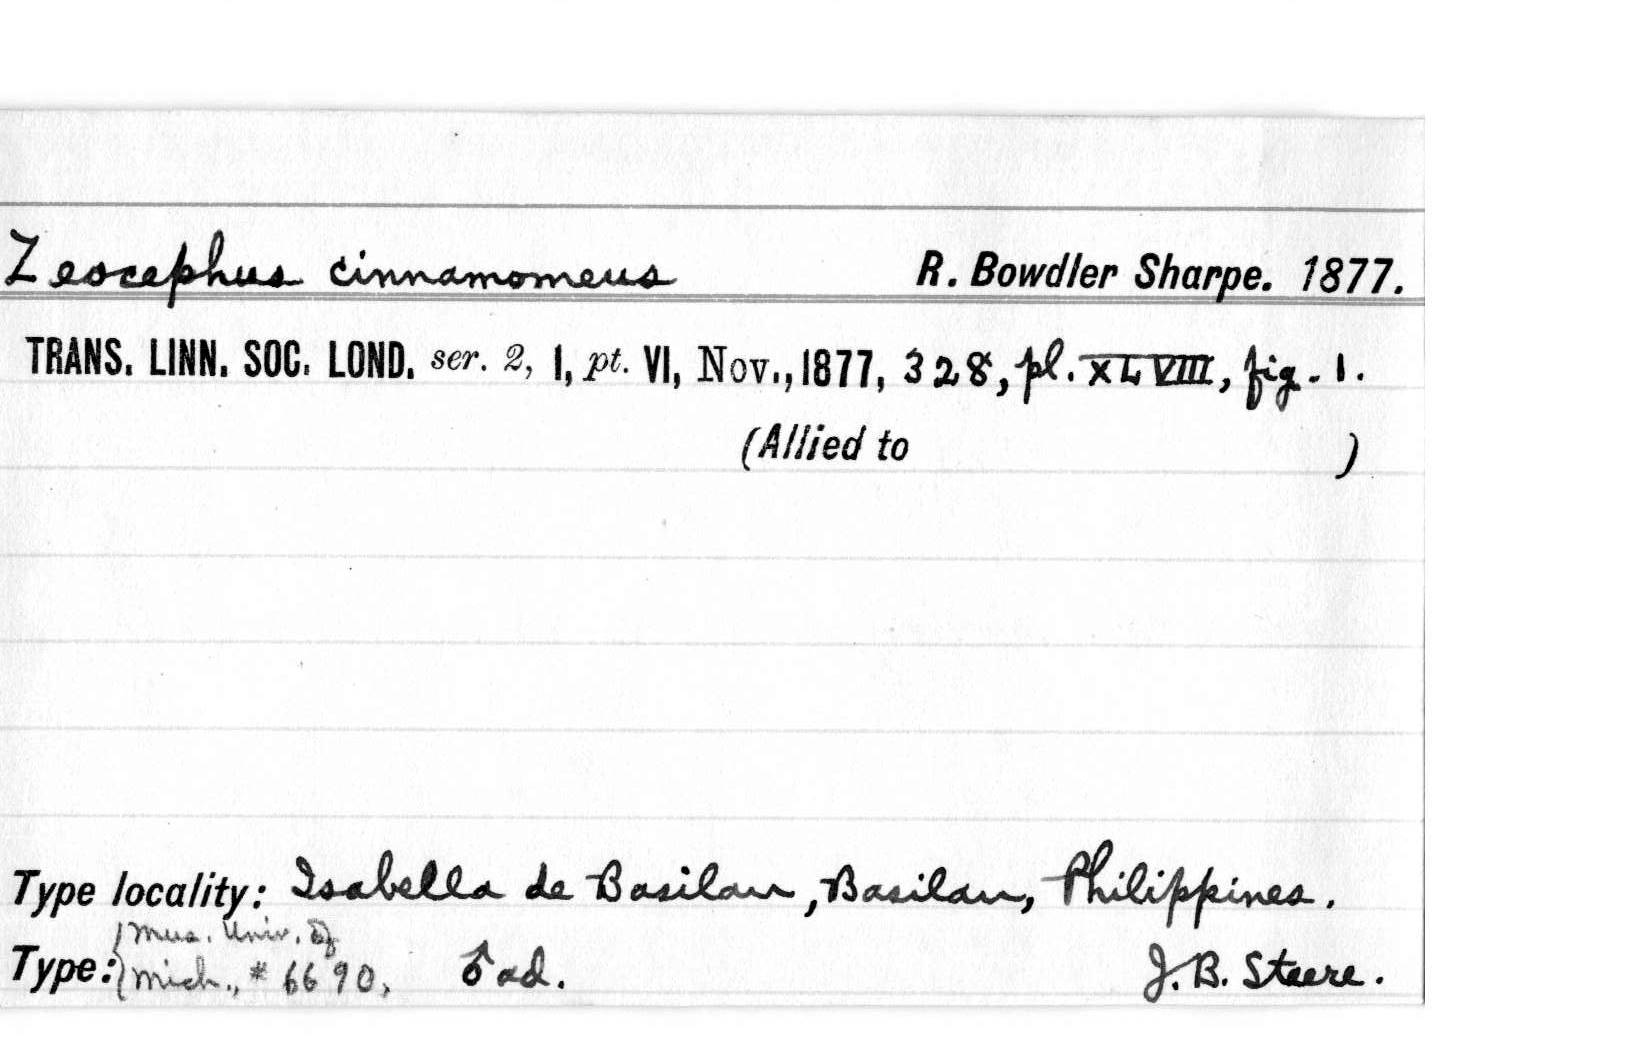 Zeocephus cinnamomeus R. Bowdler Sharpe. 1877.
TRANS. LINN. SOC. LOND. ser. 2, I, pt. VI, Nov., 1877, 328, pl. XLVIII, fig. 1.
(Allied to )
Type locality: Isabella de Basilan, Basilan, Philippines.
Mus. Univ. of
Type: Mich., # 6690, ♂ ad. J. B. Steere.